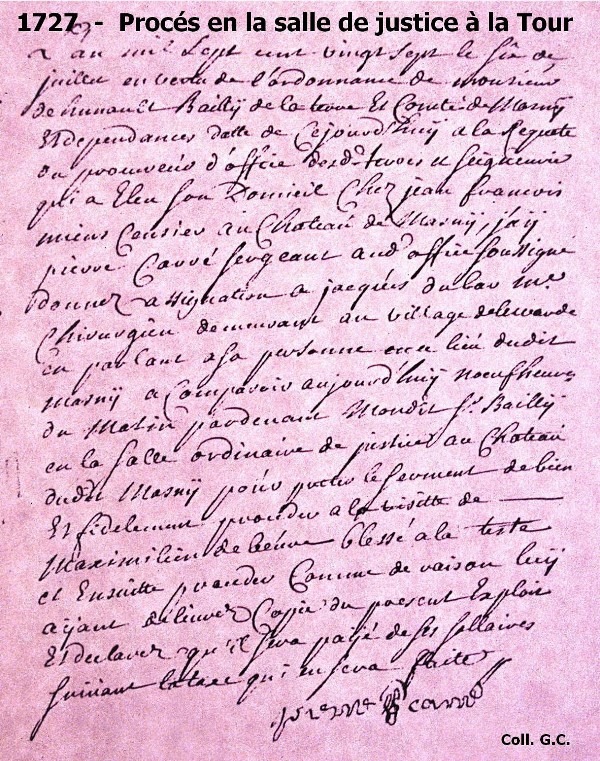 1727 - Procés en la salle de justice à la Tour
L'an mil Sept cent vingt Sept le de
juillet en vertu de l'ordonnance de monsieur
de hunault Bailly de la terre Et Comté de Masny
Et dependances datte de Cejourd'huÿ a la Requete
du procureur d'office desd. terres et Seigneurie
qui a Eleu Son Domicil Chez jean francois
miens Censier au Chateau de Masnÿ, jaÿ
pierre Carré Sergeant aud. office Soussigné
donnez assignation a jacques dular me
Chirurgien demeurant au village de lewarde
en parlant a Sa personne en ce lieu dudit
Masnÿ a Comparoir aujourd'huÿ noeuf heures
du Matin pardevant Mondit Sr. Baillÿ
en la Salle ordinaire de justice au Chateau
dudit Masnÿ pour preter le Serment de bien
Et fidelement proceder a la visitte de
Maximilien de blessé a la teste
et Ensuitte proceder Comme de raison luÿ
aÿant delivrez Copie du present Exploit
Et declarez qu'il Sera paÿé de Ses Sallaires
Suivant la taxe qui en Sera faite
pierre carré
Coll. G.C.